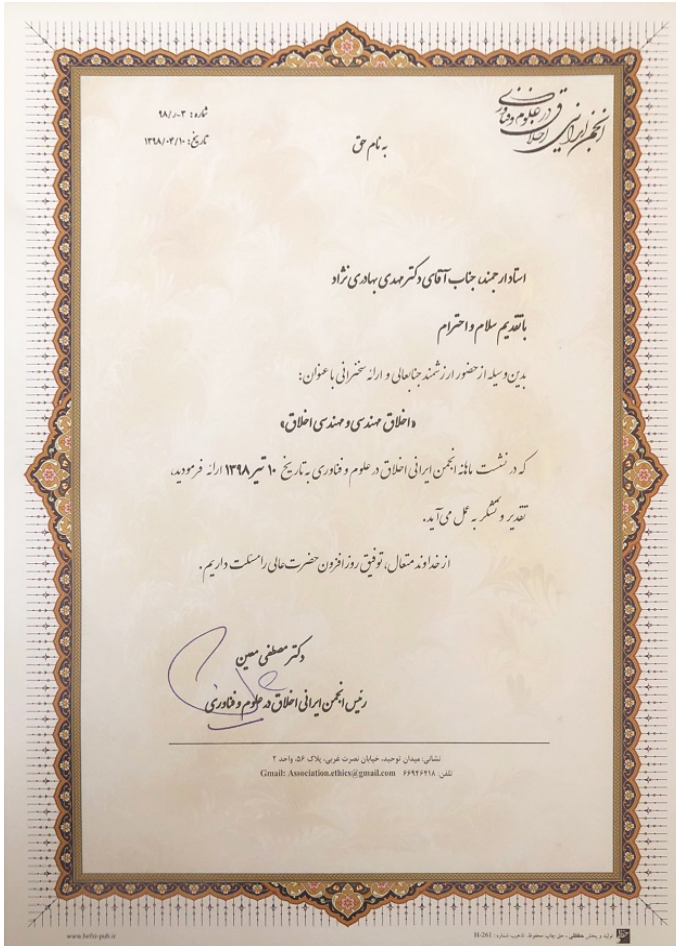 انجمن ایرانی اخلاق در علوم و فناوری
شماره: ۳-ر/۹۸
تاریخ: ۱۳۹۸/۰۴/۱۰
به نام حق
استاد ارجمند، جناب آقای دکتر مهدی بهادری نژاد
با تقدیم سلام و احترام
بدین وسیله از حضور ارزشمند جنابعالی و ارائه سخنرانی با عنوان:
«اخلاق مهندسی و مهندسی اخلاق»
که در نشست ماهانه انجمن ایرانی اخلاق در علوم و فناوری به تاریخ ۱۰ تیر ۱۳۹۸ ارائه فرمودید،
تقدیر و تشکر به عمل می‌آید.
از خداوند متعال، توفیق روزافزون حضرت عالی را مسئلت داریم.
دکتر مصطفی معین
رئیس انجمن ایرانی اخلاق در علوم و فناوری
نشانی: میدان توحید، خیابان نصرت غربی، پلاک ۵۶، واحد ۲
تلفن: ۶۶۹۴۶۲۱۸ Gmail: Association.ethics@gmail.com
تولید و پخش حفظی - حق چاپ محفوظ. تذهیب شماره: H-261